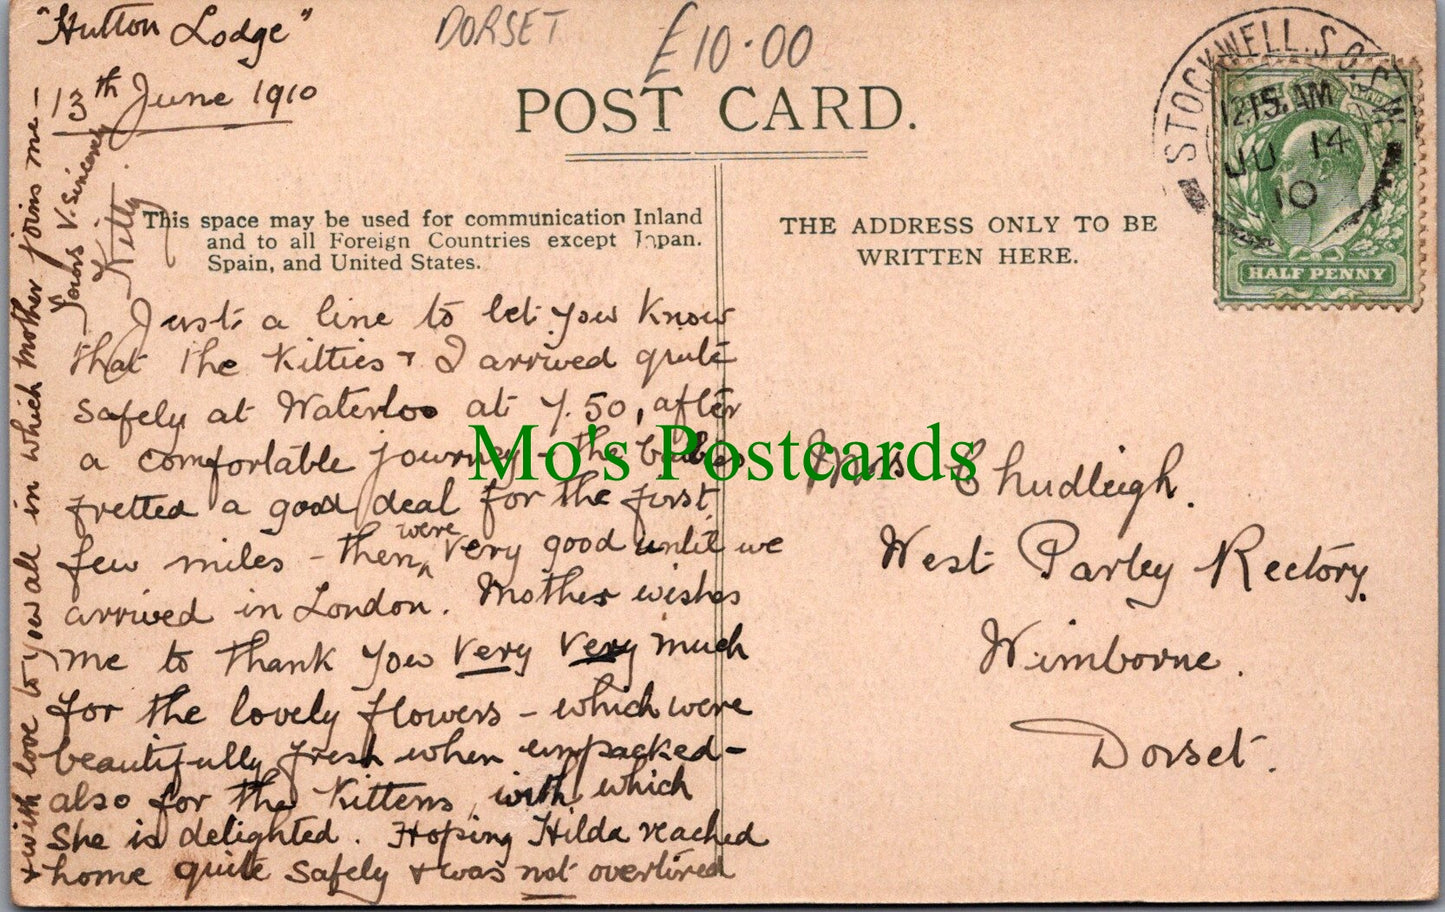 "Hutton Lodge"
13th June 1910
DORSET
£10.00
POST CARD.
This space may be used for communication Inland
and to all Foreign Countries except Japan.
Spain, and United States.
THE ADDRESS ONLY TO BE
WRITTEN HERE.
STOCKWELL. S.O.
12.15. AM
JU 14
10
HALF PENNY
Just a line to let you know
that the Kitties & I arrived quite
safely at Waterloo at 7.50, after
a comfortable journey - the babies
fretted a good deal for the first
few miles - then were very good until we
arrived in London. Mother wishes
me to thank you very very much
for the lovely flowers - which were
beautifully fresh when unpacked -
also for the Kittens, with which
she is delighted. Hoping Hilda reached
home quite safely & was not overtired
& with love to you all in which mother joins me -
Yours V. Sincerely
Kitty.
Mo's Postcards
Chudleigh.
West Parley Rectory.
Wimborne.
Dorset.